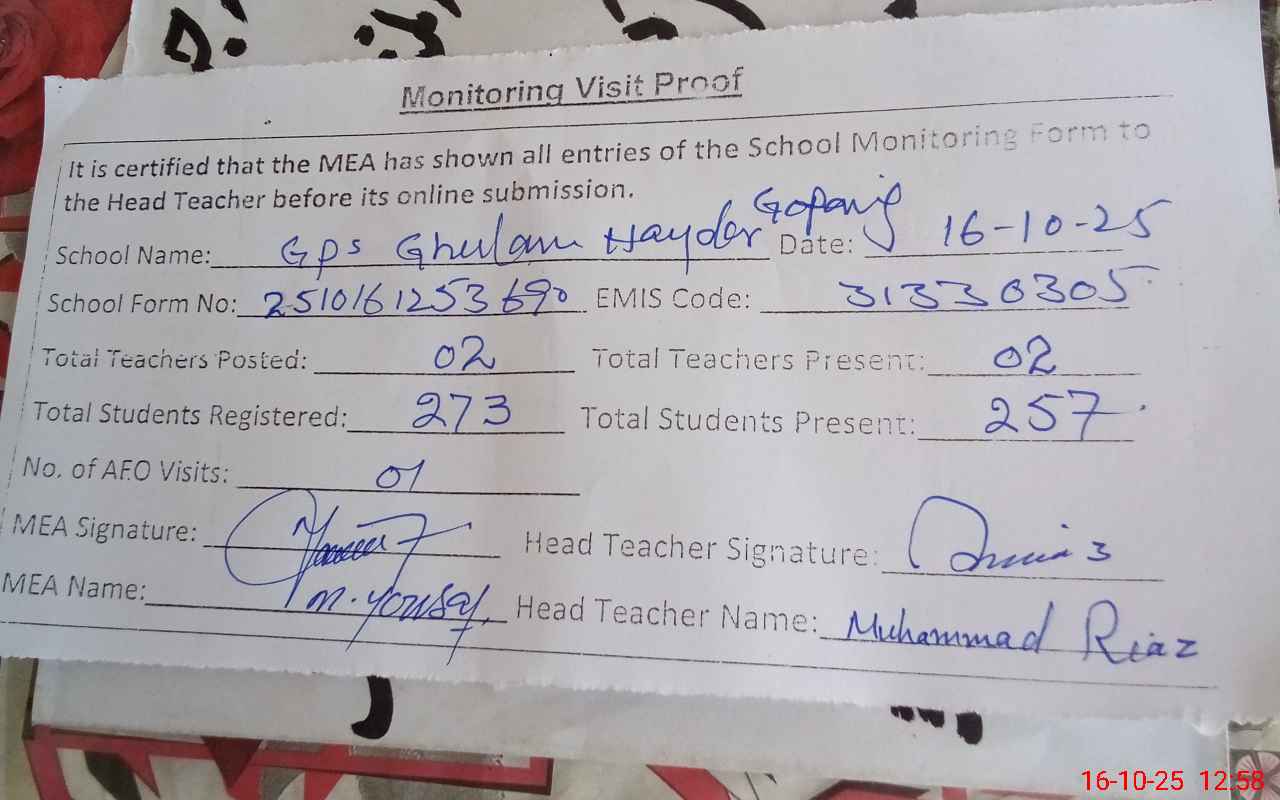 Monitoring Visit Proof
It is certified that the MEA has shown all entries of the School Monitoring Form to
the Head Teacher before its online submission.
School Name: Gps Ghulam Hayder Gopang Date: 16-10-25
School Form No: 2510161253690 EMIS Code: 31330305
Total Teachers Posted: 02 Total Teachers Present: 02
Total Students Registered: 273 Total Students Present: 257
No. of AEO Visits: 01
MEA Signature: Head Teacher Signature:
MEA Name: M. Yousaf Head Teacher Name: Muhammad Riaz
16-10-25 12:58